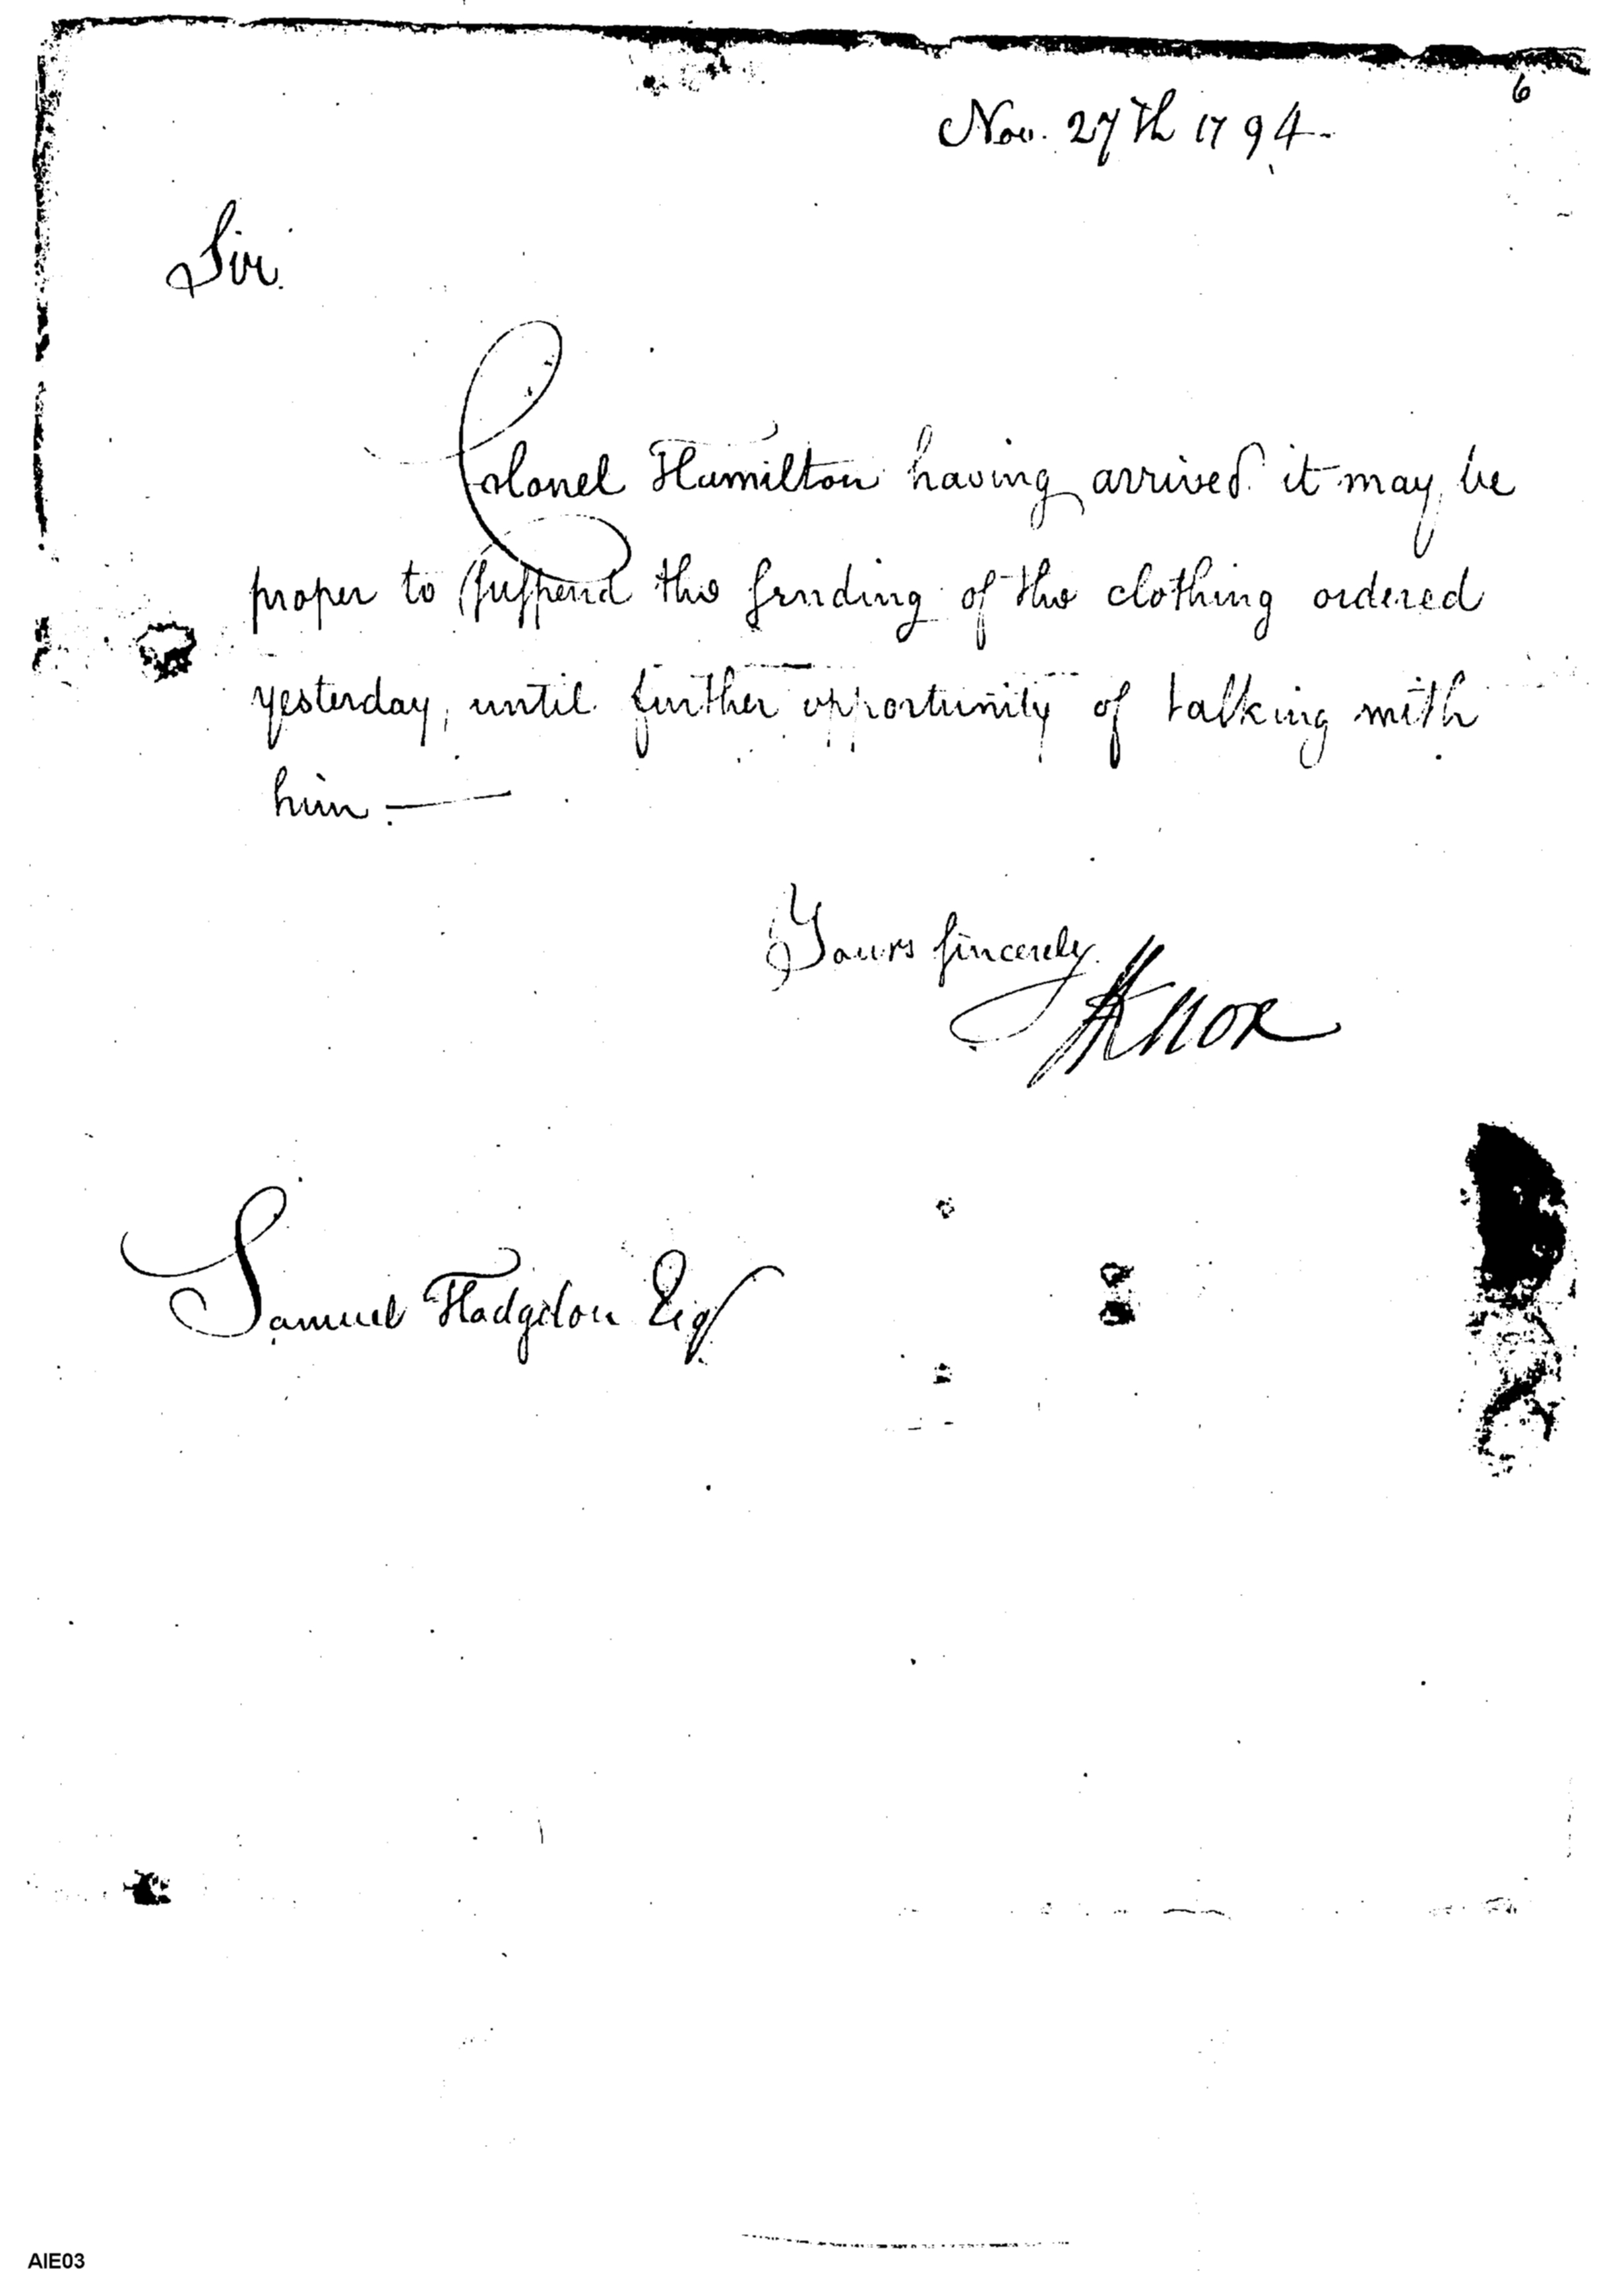 6
Nov. 27th 1794.
Sir.
Colonel Hamilton having arrived it may be
proper to suspend the sending of the clothing ordered
yesterday, until further opportunity of talking with
him.—
Yours sincerely.
HKnox
Samuel Hodgdon Esq
AIE03